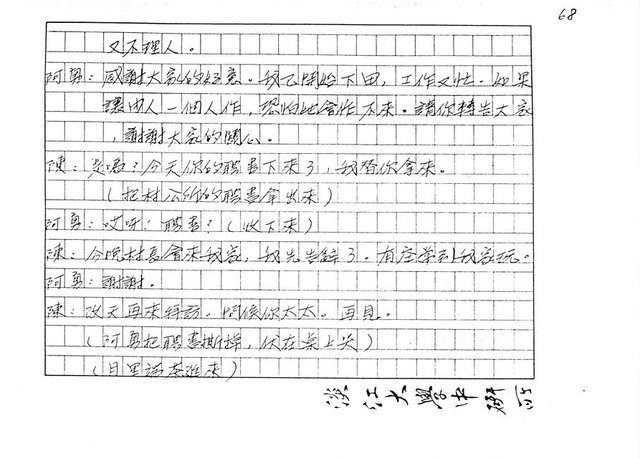 68
又不理人。
阿勇：感謝大家的好意。我已開始下田，工作又忙。如果
讓內人一個人作，恐怕她會作不來。請你轉告大家
，謝謝大家的關心。
陳：是嗎？今天你的聘書下來了，我替你拿來。
（把村公所的聘書拿出來）
阿勇：哎呀！聘書？（收下來）
陳：今晚村長會來我家，我先告辭了。有空常到我家玩。
阿勇：謝謝。
陳：改天再來拜訪。問候你太太。再見。
（阿勇把聘書撕掉，伏在桌上哭）
（月里端茶進來）
淡江大學中研所